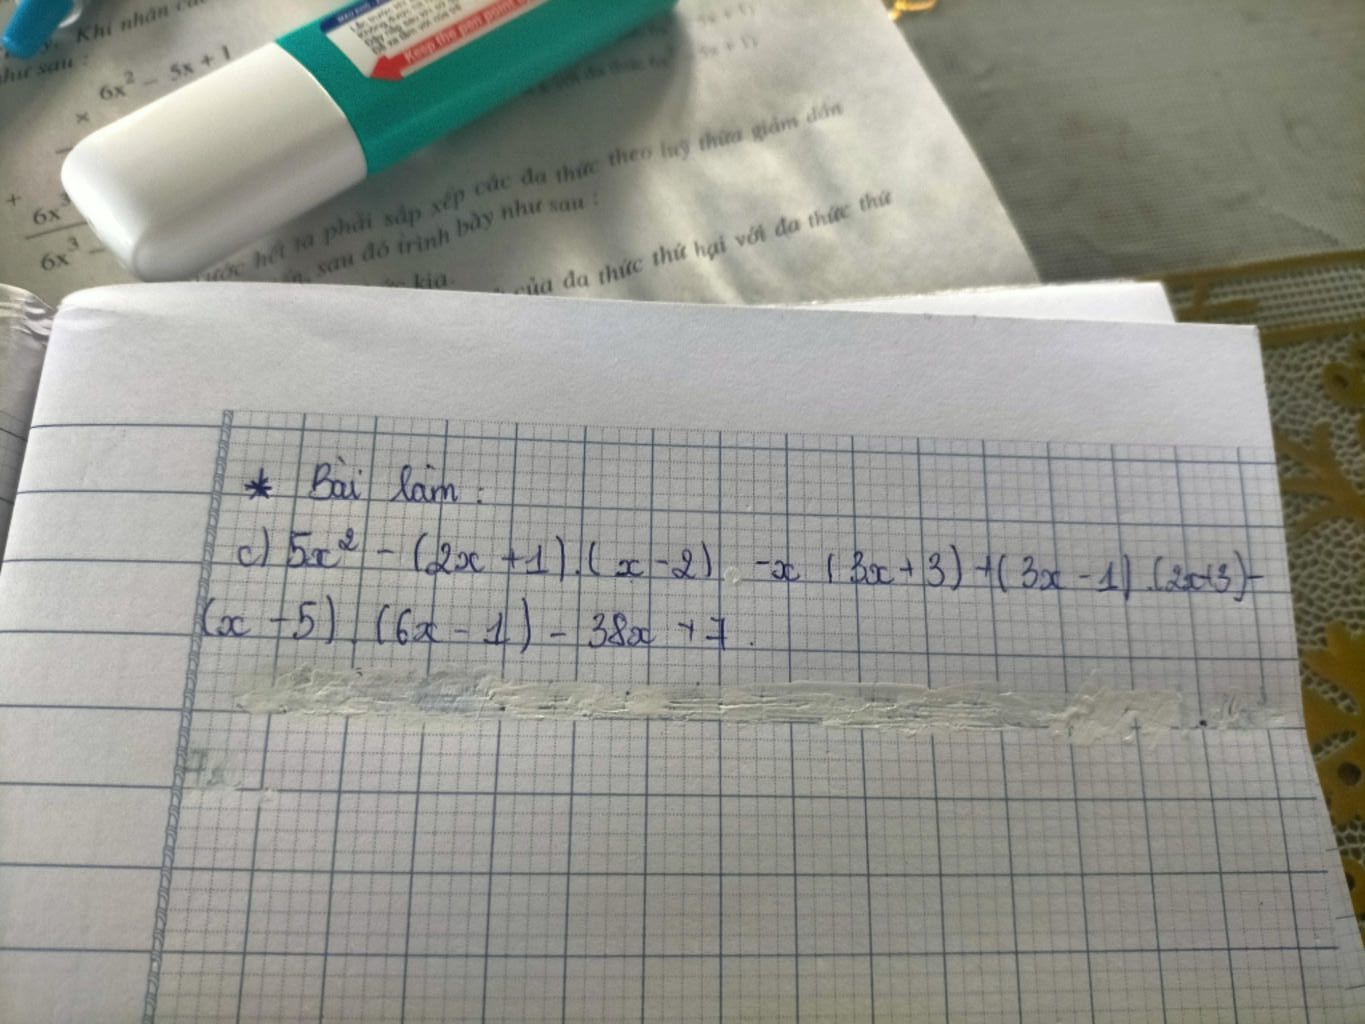 Khi nhân các
như sau :
6x² − 5x + 1
×
+
6x³
6x³ −
Keep the pen point
5x + 1)
5x + 1)
hết ta phải sắp xếp các đa thức theo luỹ thừa giảm dần
sau đó trình bày như sau :
kia.
của đa thức thứ hai với đa thức thứ
* Bài làm :
c) 5x² - (2x +1).(x-2) -x (3x+3) +(3x-1).(2x+3)-
(x +5).(6x-1) - 38x +7.